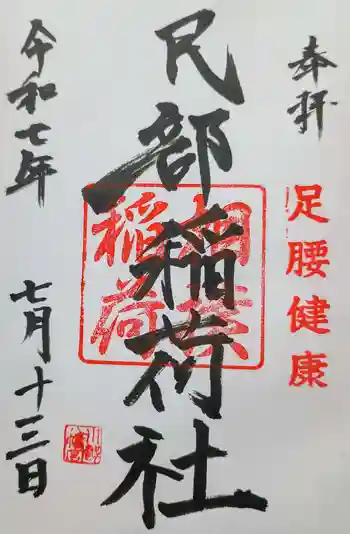 奉拝
足腰健康
尺部稲荷社
稲荷
令和七年
七月十三日